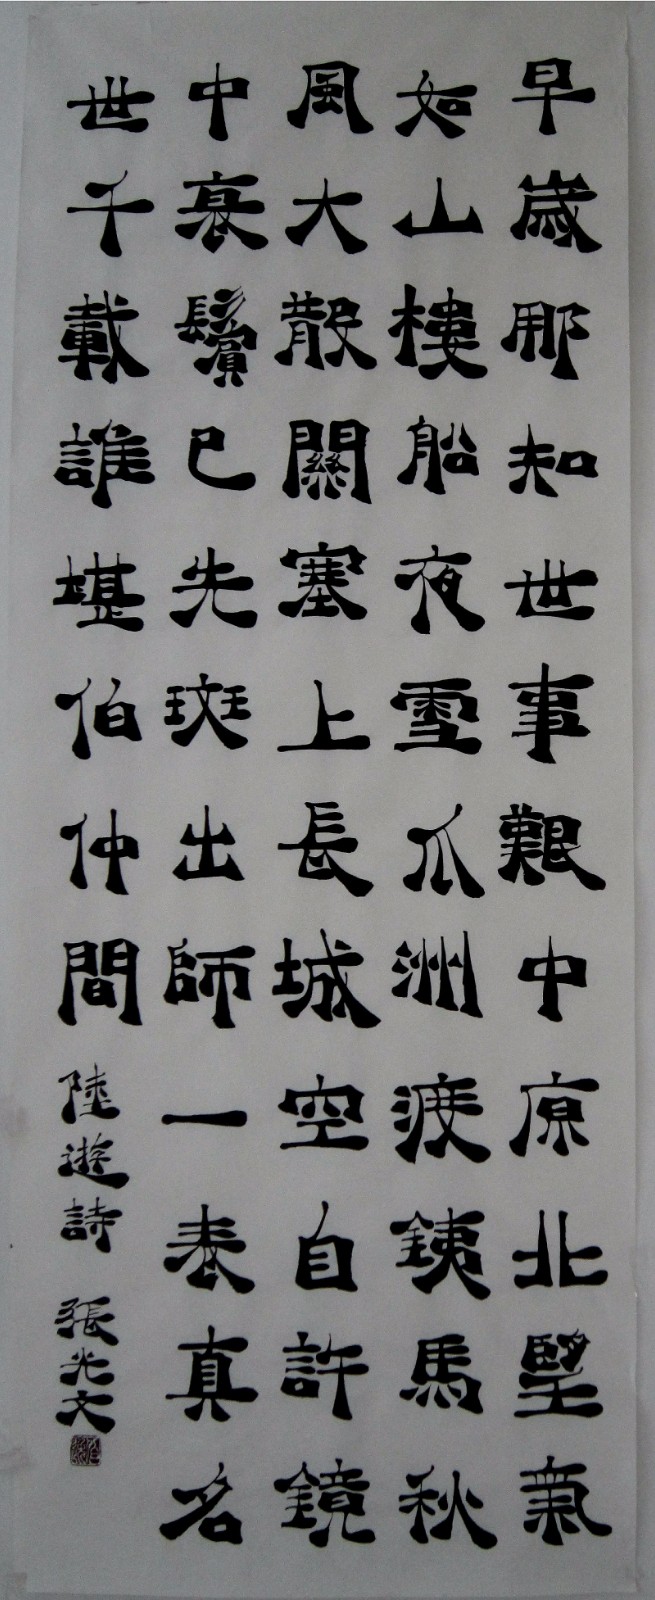 早歲那知世事艱中原北望氣
如山樓船夜雪瓜洲渡銕馬秋
風大散關塞上長城空自許鏡
中衰鬢已先斑出師一表真名
世千載誰堪伯仲間 陸遊詩 張光文